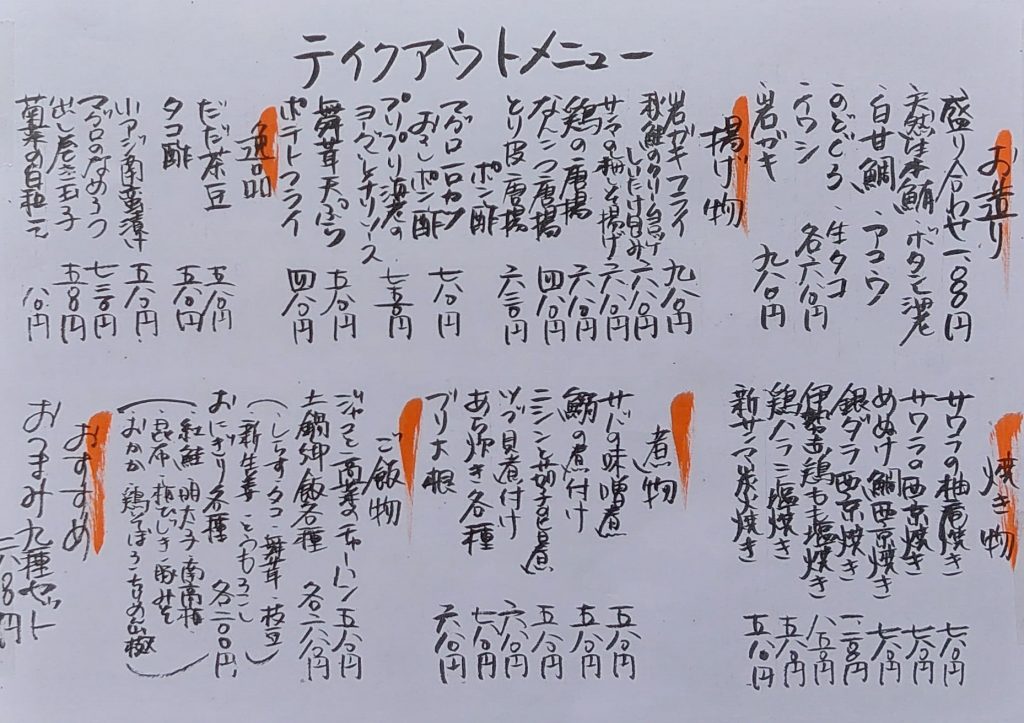 ティクアウトメニュー
お造り
盛り合わせ 一、八〇〇円
天然生本鮪 ボタン海老
白甘鯛 アコウ
のどぐろ 生タコ
イワシ 各六八〇円
岩ガキ 九八〇円
揚げ物
岩ガキフライ 九八〇円
秋鮭ののり台揚げ
しいたけ包み 六八〇円
サンマの梅しそ揚げ 六八〇円
鶏の唐揚 六八〇円
なんこつ唐揚 四八〇円
とり皮唐揚 六三〇円
ポン酢
マグロ一口カツ
おろしポン酢 七八〇円
プリプリ海老の
ヨーグルトソース 七三〇円
舞茸天ぷら 五八〇円
ポテトフライ 四八〇円
一逸品
だだ茶豆 五八〇円
タコ酢 五八〇円
小アジ南蛮漬け 五八〇円
マグロのなめろう 七三〇円
出し巻き玉子 五八〇円
菊菜の白和え 八〇円
焼き物
サワラの柚庵焼き 七八〇円
サワラの西京焼き 七八〇円
めぬけ鯛西京焼き 七八〇円
銀ダラ西京焼き 一、二八〇円
伊勢赤鶏もも塩焼き 八五〇円
鶏ハラミ塩焼き 五八〇円
新サンマ炭火焼き 五八〇円
煮物
サバの味噌煮 五八〇円
鮪の煮付け 五八〇円
ニシンと茄子旨煮 五八〇円
ツブ貝煮付け 六八〇円
あら炊き各種 七八〇円
ブリ大根 六八〇円
ご飯物
ジャコと高菜チャーハン 五八〇円
土鍋御飯各種 各一、八〇円
(しらすタコ・舞茸・枝豆
新生姜・とうもろこし)
おにぎり各種 各二〇〇円
(紅鮭 明太子 南高梅
昆布 梅ひじき 豚みそ
おかか 鶏そぼろ ちりめん山椒)
おすすめ
おつまみ九種セット
二、八〇円